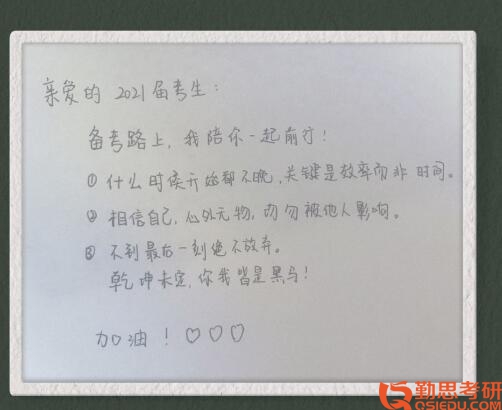 亲爱的 2021届考生：
备考路上，我陪你一起前行！
① 什么时候开始都不晚，关键是效率而非时间。
② 相信自己，心外无物，切勿被他人影响。
③ 不到最后一刻绝不放弃。
乾坤未定，你我皆是黑马！
加油！♡♡♡
勤思考研
QSIEDU.COM